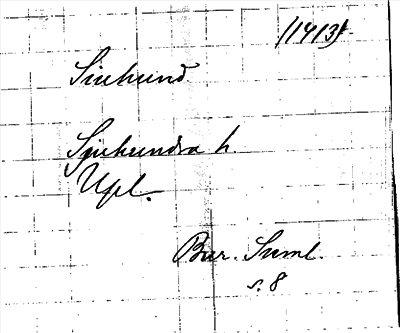 (1413)
Siuhund
Sjuhundra h.
Upl.
Bur. Suml.
s. 8